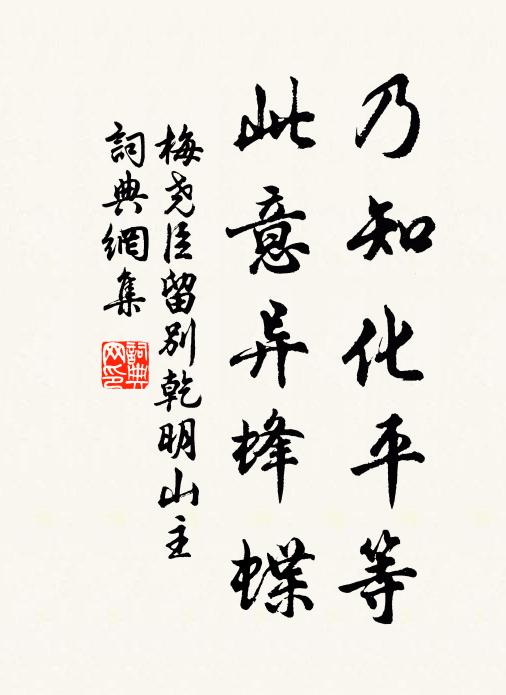 乃知化平等
此意异蜂蝶
梅尧臣留别乾明山主
詞典網集
詞典网印